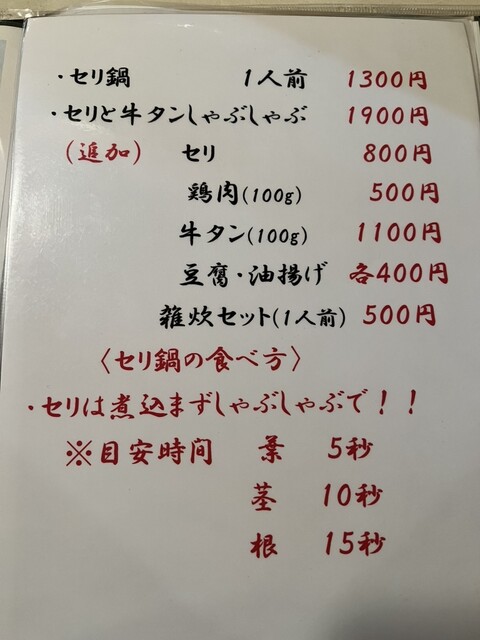 ・セリ鍋 1人前 1300円
・セリと牛タンしゃぶしゃぶ 1900円
(追加) セリ 800円
鶏肉(100g) 500円
牛タン(100g) 1100円
豆腐・油揚げ 各400円
雑炊セット(1人前) 500円
〈セリ鍋の食べ方〉
・セリは煮込まずしゃぶしゃぶで！！
※目安時間 葉 5秒
茎 10秒
根 15秒